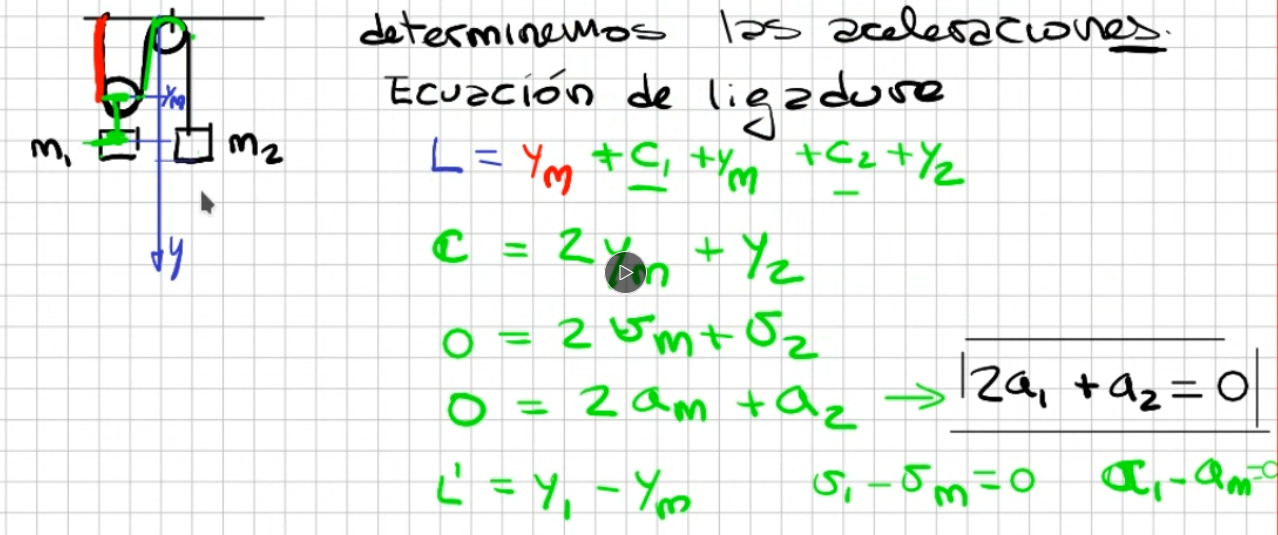 determinemos las aceleraciones.
Ecuación de ligadura
yM
m₁ m₂
y
L = yM + C₁ + yM + C₂ + y₂
C = 2 yM + y₂
0 = 2 vM + v₂
0 = 2 aM + a₂ → |2a₁ + a₂ = 0|
L' = y₁ - yM v₁ - vM = 0 a₁ - aM = 0